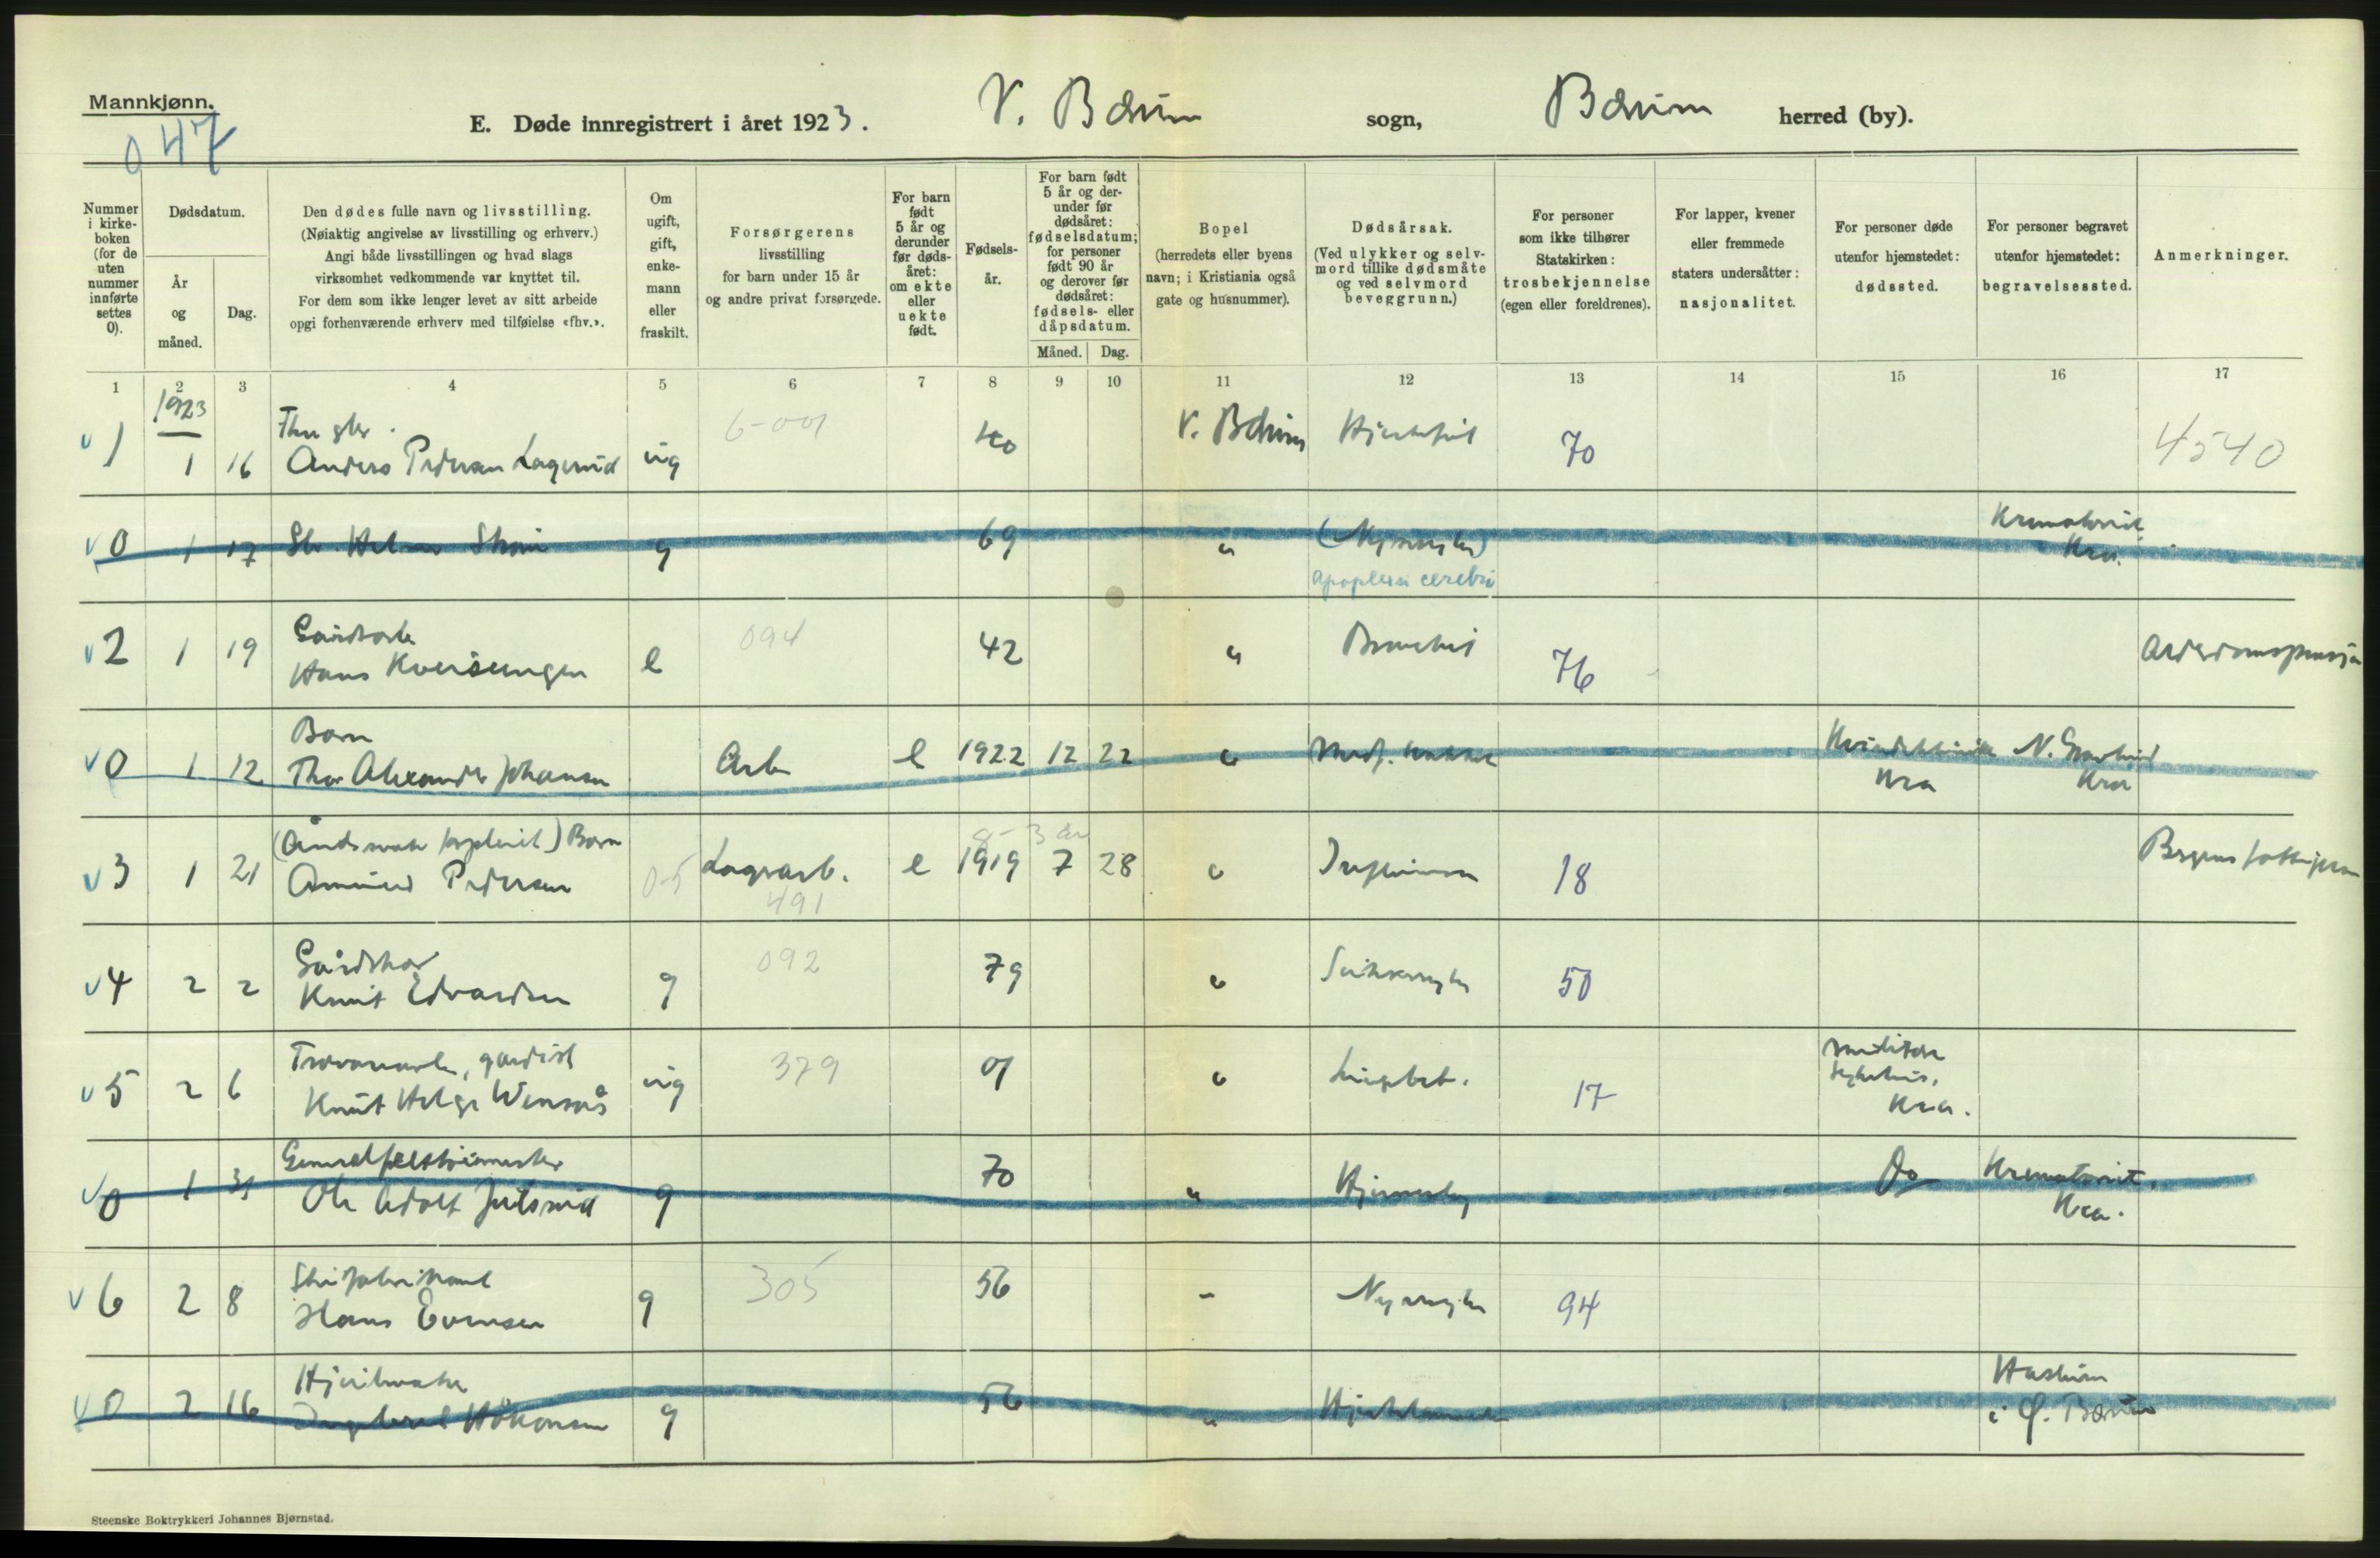 Mannkjønn.
047
E. Døde innregistrert i året 1923. V. Bærum sogn, Bærum herred (by).
Nummer i kirke-boken (for de uten nummer innførte settes 0).
Dødsdatum.
År og måned.
Dag.
Den dødes fulle navn og livsstilling.
(Nøiaktig angivelse av livsstilling og erhverv.)
Angi både livsstillingen og hvad slags
virksomhet vedkommende var knyttet til.
For dem som ikke lenger levet av sitt arbeide
opgi forhenværende erhverv med tilføielse «fhv.».
Om ugift, gift, enke-mann eller fraskilt.
Forsørgerens
livsstilling
for barn under 15 år
og andre privat forsørgede.
For barn født 5 år og derunder før døds-året: om ekte eller uekte født.
Fødsels-år.
For barn født 5 år og der-under før dødsåret: fødselsdatum; for personer født 90 år og derover før dødsåret: fødsels- eller dåpsdatum.
Måned. Dag.
Bopel
(herredets eller byens
navn; i Kristiania også
gate og husnummer).
Dødsårsak.
(Ved ulykker og selv-
mord tillike dødsmåte
og ved selvmord
beveggrunn.)
For personer
som ikke tilhører
Statskirken:
trosbekjennelse
(egen eller foreldrenes).
For lapper, kvener
eller fremmede
staters undersåtter:
nasjonalitet.
For personer døde
utenfor hjemstedet:
dødssted.
For personer begravet
utenfor hjemstedet:
begravelsessted.
Anmerkninger.
1 2 3 4 5 6 7 8 9 10 11 12 13 14 15 16 17
1923
1 1 16 Anders Pedersen Lagerud ug 40 V. Bærum 70 4540
0 1 17 g 69 " Krematoriet
Kra.
apoplexia cerebri
2 1 19 Gårdsarb.
Hans e 094 42 " Bronchit 76 Alderdomspensjon
0 1 12 Barn
Thor Alexander Johansen Arb. e 1922 12 22 " Kvindeklinikk N. Gravlund
Kra Kra
8- 3 år
3 1 21 Barn
Amund Pedersen 0-5 Lagerarb. e 1919 7 28 " 18
491
4 2 2 Gårdskar
Knut Edvardsen g 092 79 " 50
5 2 6 gardist
Knut Helge ug 379 01 " Lungebet. 17 Militære
sykehus,
Kra.
0 1 31 Generalfelttøimester
Ole Adolf g 70 " Do Krematoriet.
Kra.
6 2 8 Skifabrikant
Hans Evensen g 305 56 - Nyresyke 94
0 2 16 Hjulmaker
Ingebret Håkonsen g 56 " Haslum
i Ø. Bærum
Steenske Boktrykkeri Johannes Bjørnstad.